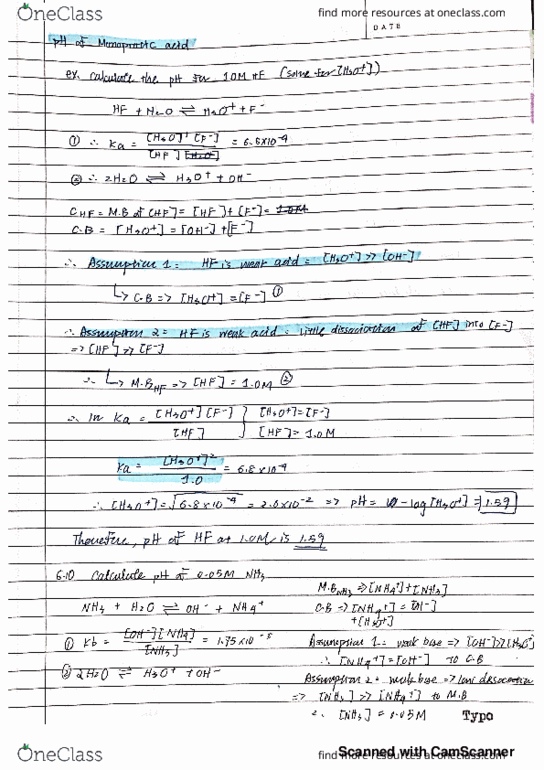 OneClass
find more resources at oneclass.com
DATE
pH of Monoprotic acid
ex. calculate the pH for 1.0M HF (solve for [H3O+])
HF + H2O ⇌ H3O+ + F-
① ∴ Ka = [H3O]+ [F-] / [HF] [H2O] = 6.8×10-4
② ∴ 2H2O ⇌ H3O+ + OH-
CHF = M.B of [HF] = [HF] + [F-] = 1.0M
C.B = [H3O+] = [OH-] + [F-]
∴ Assumption 1 = HF is weak acid = [H3O+] >> [OH-]
↳ C.B => [H3O+] = [F-] ①
∴ Assumption 2 = HF is weak acid = little dissociation of [HF] into [F-]
=> [HF] >> [F-]
∴ ↳ M.B HF => [HF] = 1.0M ②
∴ In Ka = [H3O+] [F-] / [HF] } [H3O+] = [F-]
[HF] = 1.0M
Ka = [H3O+]2 / 1.0 = 6.8×10-4
∴ [H3O+] = √6.8×10-4 = 2.6×10-2 => pH = -log[H3O+] = 1.59
Therefore, pH of HF at 1.0M is 1.59
6.10 Calculate pH of 0.05M NH3
M.B NH3 => [NH4+] + [NH3]
NH3 + H2O ⇌ OH- + NH4+
C.B => [NH4+] = [OH-]
+ [H3O+]
① Kb = [OH-] [NH4] / [NH3] = 1.75×10-5
Assumption 1 = weak base => [OH-] >> [H3O+]
∴ [NH4+] = [OH-] to C.B
② 2H2O ⇌ H3O+ + OH-
Assumption 2 = weak base => low dissociation
=> [NH3] >> [NH4+] to M.B
∴ [NH3] = 0.05M
Typo
OneClass
find more resources at oneclass.com
Scanned with CamScanner